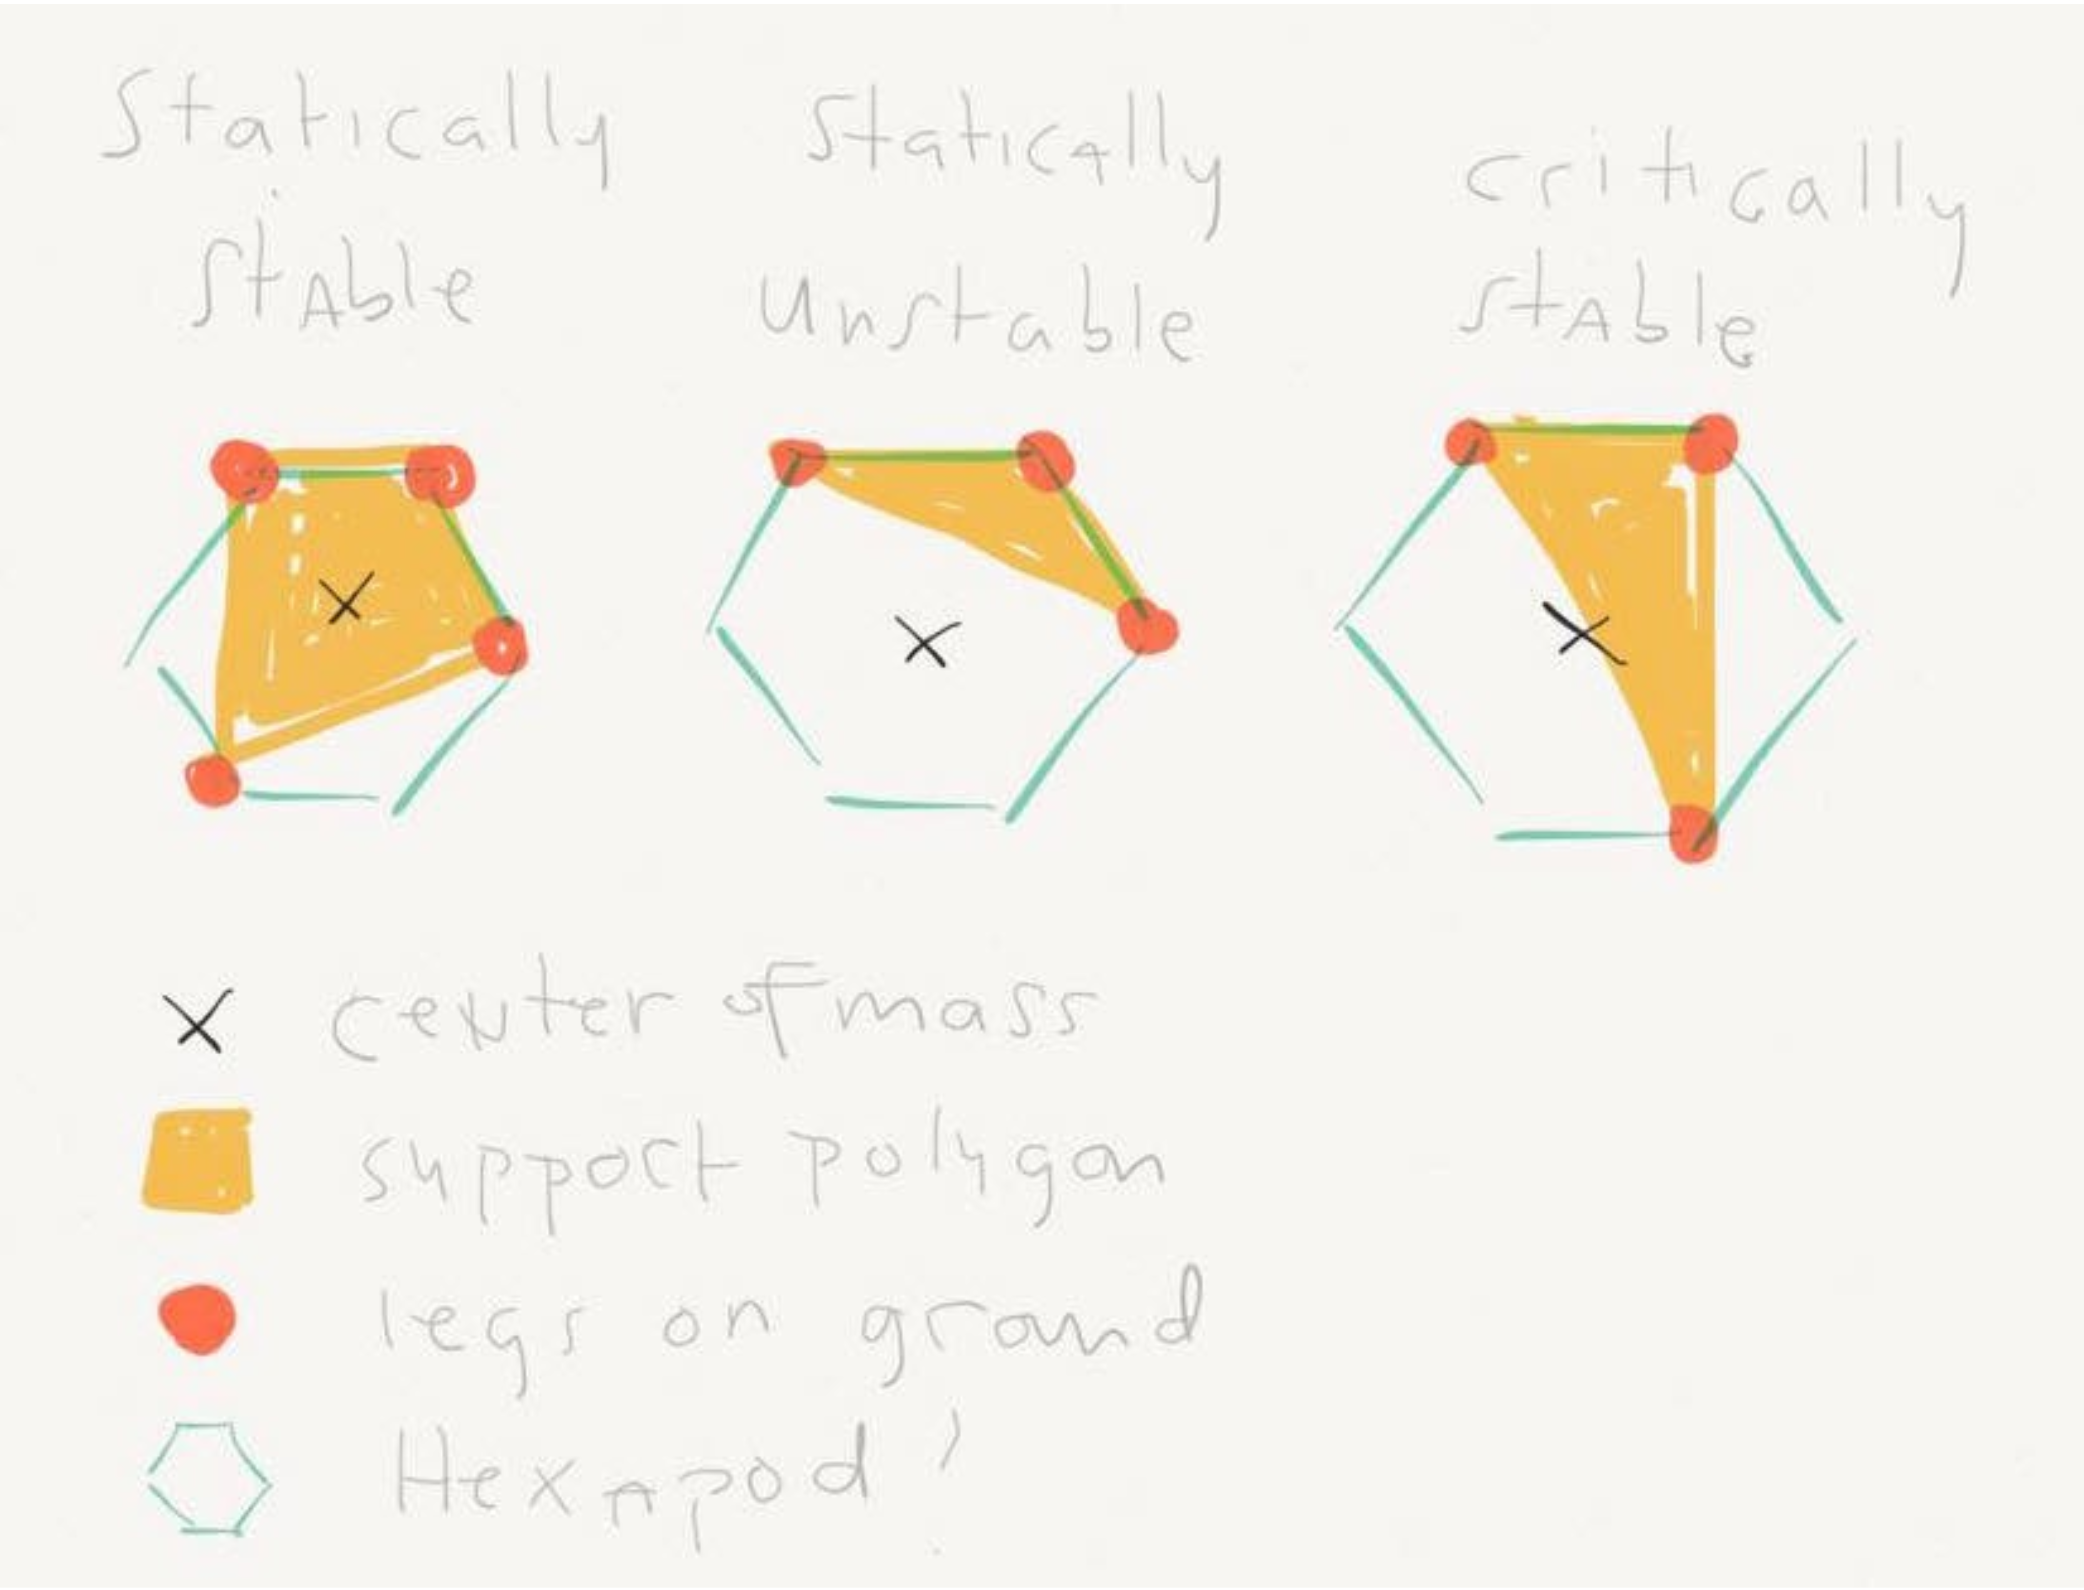 Statically
StAble
Statically
Unstable
critically
stAble
center of mass
support polygon
legs on ground
HexApod